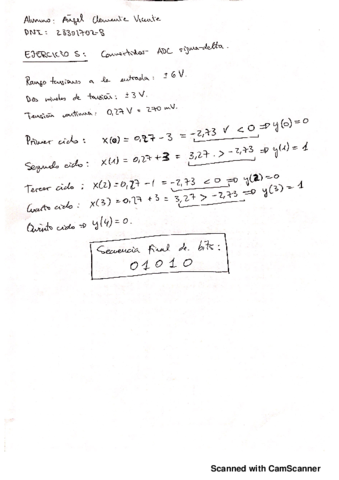 Alumno: Ángel Clemente Vicente
DNI: 28301702-S
EJERCICIO 5: Convertidor ADC sigma-delta.
Rango tensiones a la entrada: ±6V.
Dos niveles de tensión: ±3V.
Tensión continua: 0,27V = 270 mV.
Primer ciclo: x(0) = 0,27 - 3 = -2,73 V < 0 ⇒ y(0) = 0
Segundo ciclo: x(1) = 0,27 + 3 = 3,27 > -2,73 ⇒ y(1) = 1
Tercer ciclo: x(2) = 0,27 - 1 = -2,73 < 0 ⇒ y(2) = 0
Cuarto ciclo: x(3) = 0,27 + 3 = 3,27 > -2,73 ⇒ y(3) = 1
Quinto ciclo ⇒ y(4) = 0.
Secuencia final de bits:
0 1 0 1 0
Scanned with CamScanner